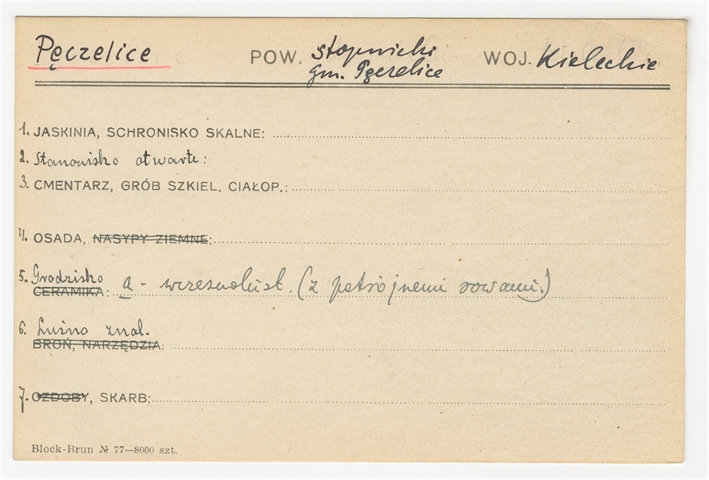 Pęczelice POW. stopnicki WOJ. Kieleckie
gm. Pęczelice
1. JASKINIA, SCHRONISKO SKALNE:
2. Stanowisko otwarte:
3. CMENTARZ, GRÓB SZKIEL. CIAŁOP.:
4. OSADA, NASYPY ZIEMNE:
5. Grodzisko
CERAMIKA: a - wczesnohist. (z potrójnemi rowami.)
6. Luźno znal.
BROŃ, NARZĘDZIA:
7. OZDOBY, SKARB:
Block-Brun № 77—8000 szt.